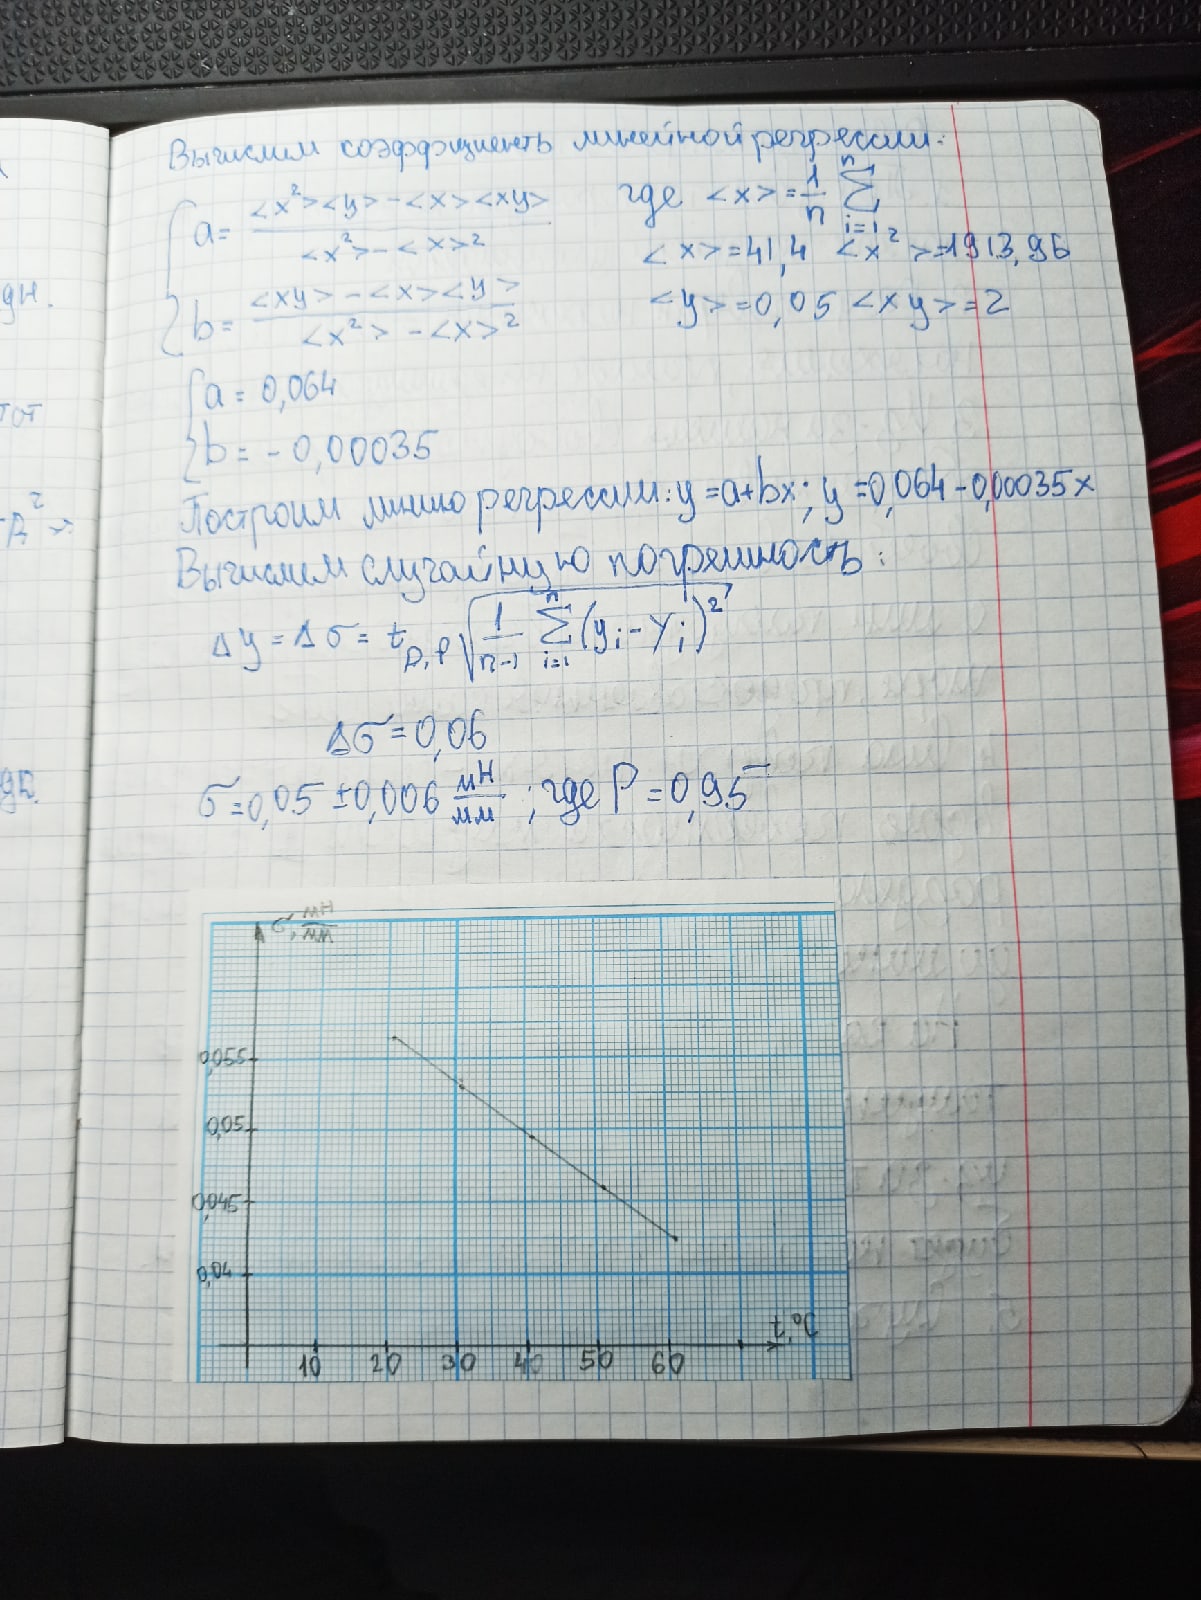 Вычислим коэффициенты линейной регрессии:
a = <x²><y> - <x><xy> / <x²> - <x>²
где <x> = 1/n Σ i=1 n
<x> = 41,4 <x²> = 1913,96
b = <xy> - <x><y> / <x²> - <x>²
<y> = 0,05 <xy> = 2
a = 0,064
b = - 0,00035
Построим линию регрессии: y = a+bx; y = 0,064 - 0,00035x
Вычислим случайную погрешность:
Δy = Δσ = t p,f √ 1/n-1 Σ i=1 n (yi - Yi)²
Δσ = 0,06
σ = 0,05 ± 0,006 мН/мм ; где P = 0,95
σ, мН/мм
0,055
0,05
0,045
0,04
t,°C
10 20 30 40 50 60
дн.
тот